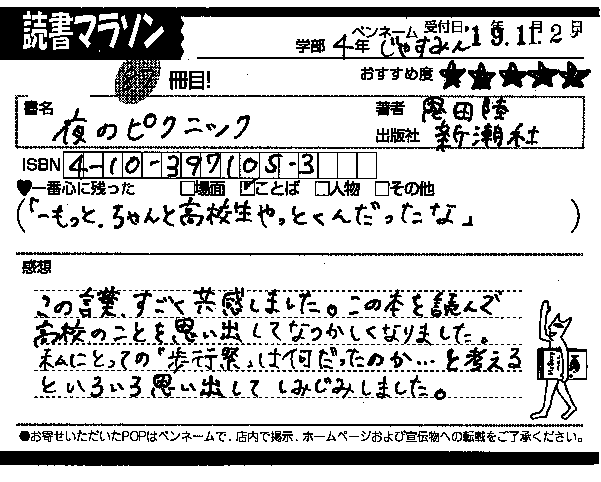 読書マラソン
学部 4年 ペンネーム じゃすみん 受付日 19年11月2日
冊目! おすすめ度 ★★★★★
書名 夜のピクニック 著者 恩田陸
出版社 新潮社
ISBN 4-10-397105-3
♥一番心に残った □場面 ☑ことば □人物 □その他
(「―もっと、ちゃんと高校生やっとくんだったな」)
感想
この言葉、すごく共感しました。この本を読んで
高校のことを思い出してなつかしくなりました。
私にとっての「歩行祭」は何だったのか…と考える
といろいろ思い出してしみじみしました。
●お寄せいただいたPOPはペンネームで、店内で掲示、ホームページおよび宣伝物への転載をご了承ください。